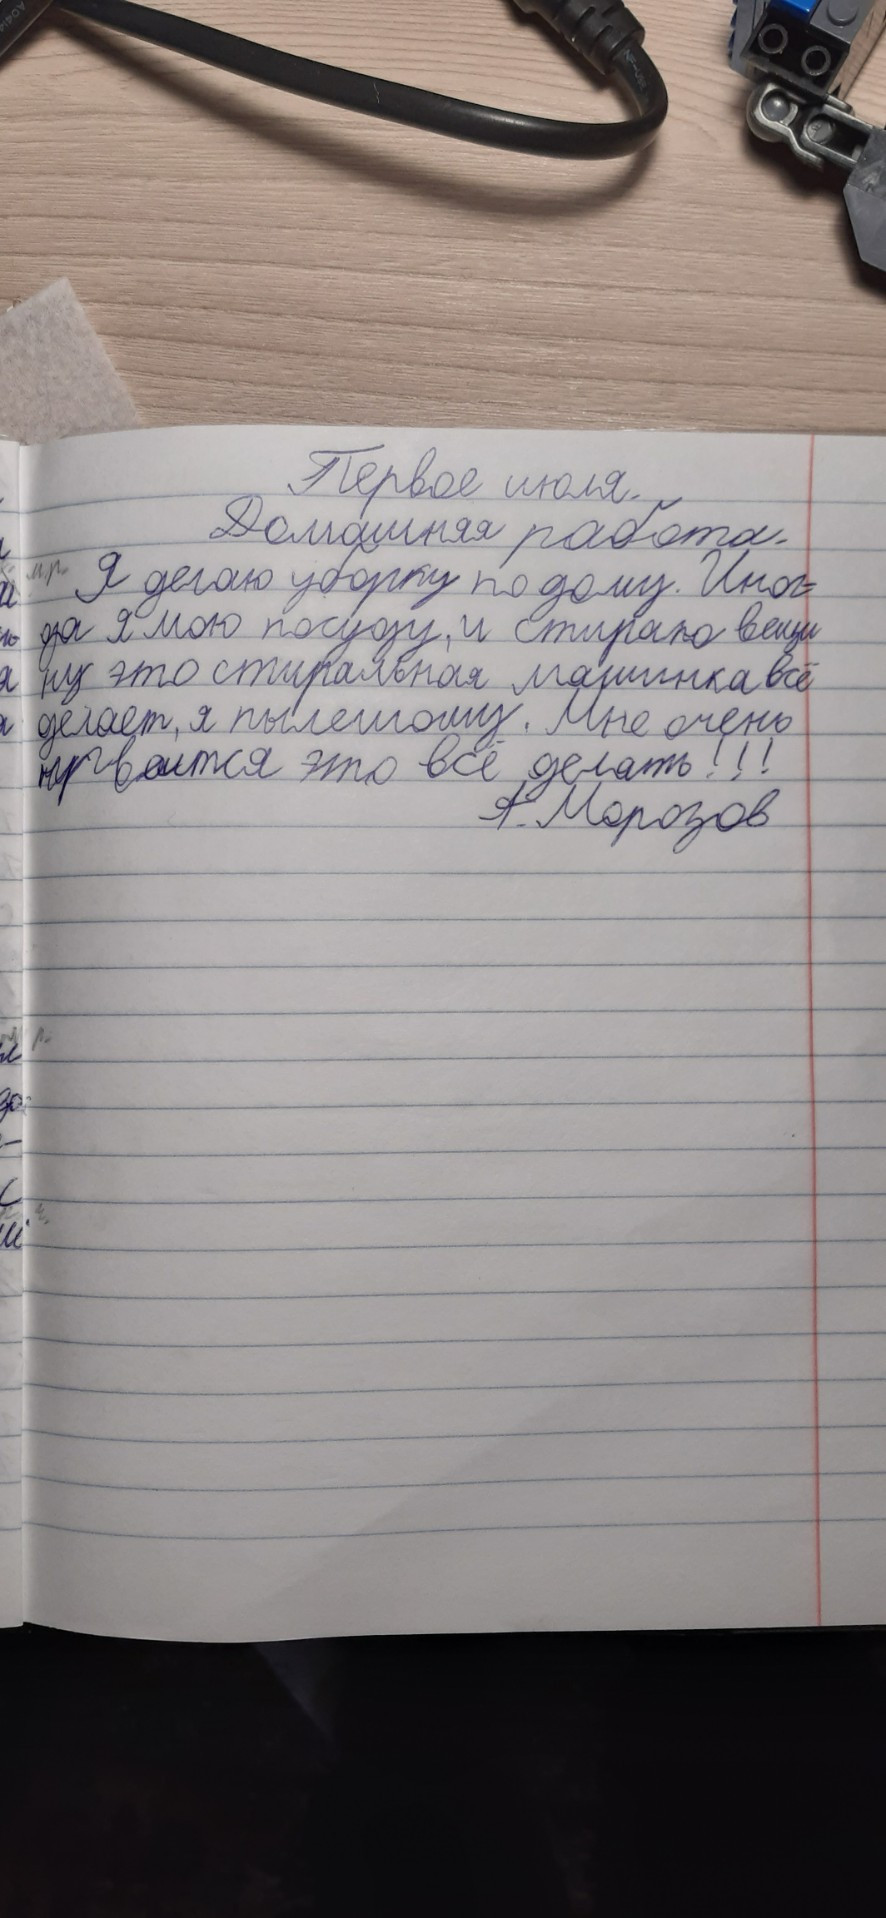 Первое июля.
Домашняя работа.
Я делаю уборку по дому. Иног-
да я мою посуду, и стираю вещи
ну это стиральная машинка всё
делает, я пылешошу. Мне очень
нрвоится это всё делать!!!
А. Морозов